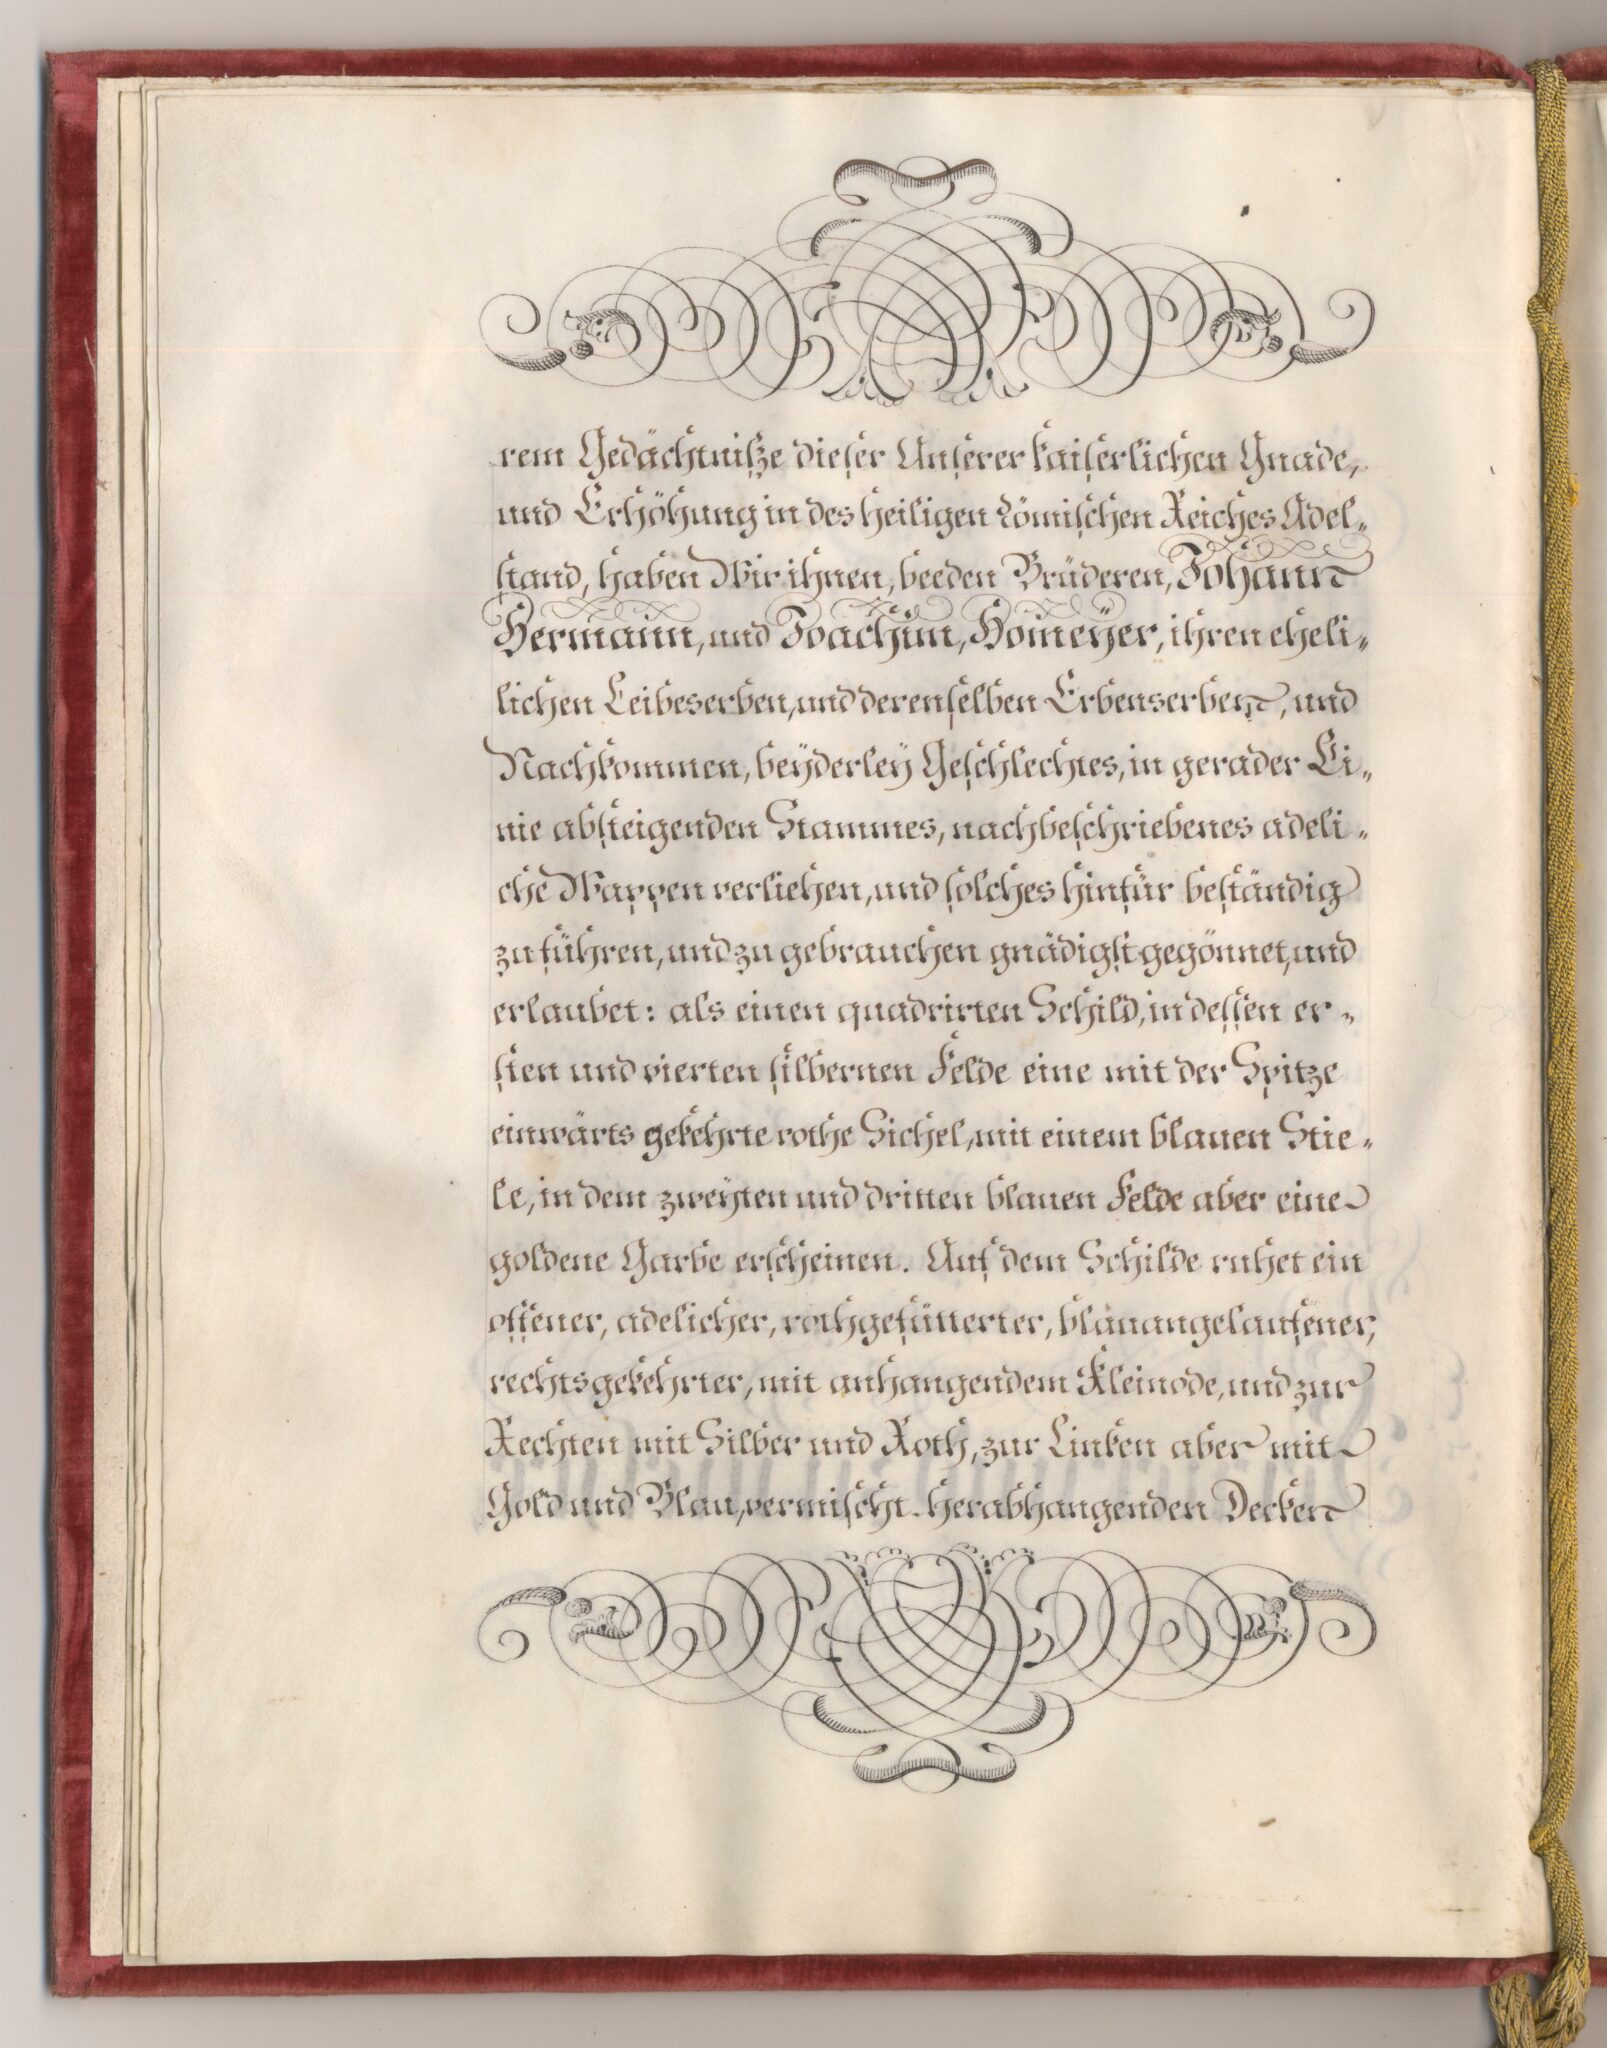 rem Gedächtniße dieser Unserer kaiserlichen Gnade,
und Erhöhung in des heiligen römischen Reiches Adel„
stand, haben Wir ihnen, beeden Brüderen, Johann
Hermann, und Joachim, Homeÿer, ihren eheli„
lichen Leibeserben, und derenselben Erbenserben, und
Nachkommen, beÿderleÿ Geschlechtes, in gerader Li„
nie absteigenden Stammes, nachbeschriebenes adeli„
che Wappen verliehen, und solches hinfür beständig
zu führen, und zu gebrauchen gnädigst gegönnet, und
erlaubet: als einen quadrirten Schild, in dessen er„
sten und vierten silbernen Felde eine mit der Spitze
einwärts gekehrte rothe Sichel, mit einem blauen Stie„
le, in dem zweÿten und dritten blauen Felde aber eine
goldene Garbe erscheinen. Auf dem Schilde ruhet ein
offener, adelicher, rothgefütterter, blauangelaufener,
rechtsgekehrter, mit anhangendem Kleinode, und zur
Rechten mit Silber und Roth, zur Linken aber mit
Gold und Blau, vermischt-herabhangenden Decken